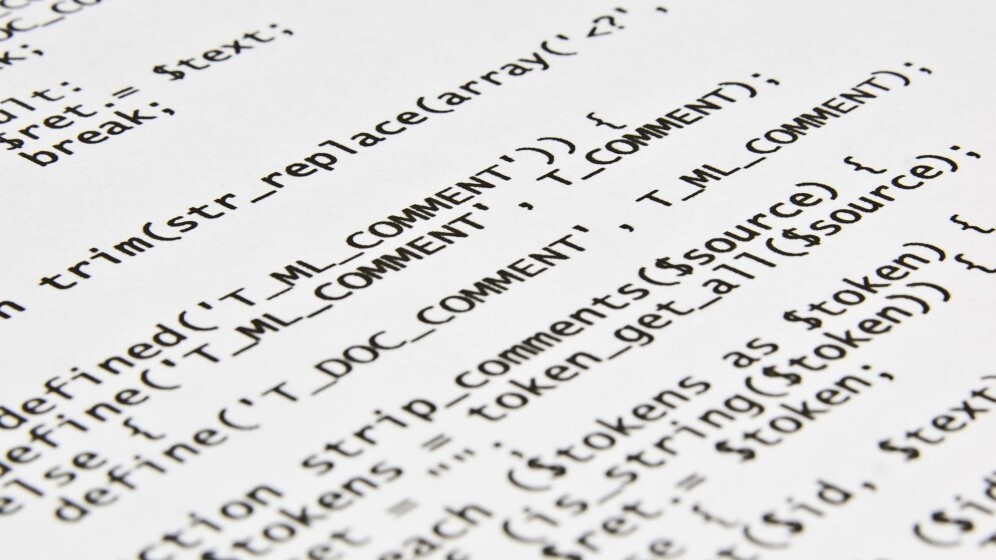 k;
ult:
$ret .= $text;
break;
n trim(str_replace(array('<?',
defined('T_ML_COMMENT')) {
define('T_ML_COMMENT', T_COMMENT);
else {
define('T_DOC_COMMENT', T_ML_COMMENT);
ction strip_comments($source) {
$tokens = token_get_all($source);
et = "";
each ($tokens as $token) {
(is_string($token)) {
$ret .= $token;
e {
($id, $text)
($id